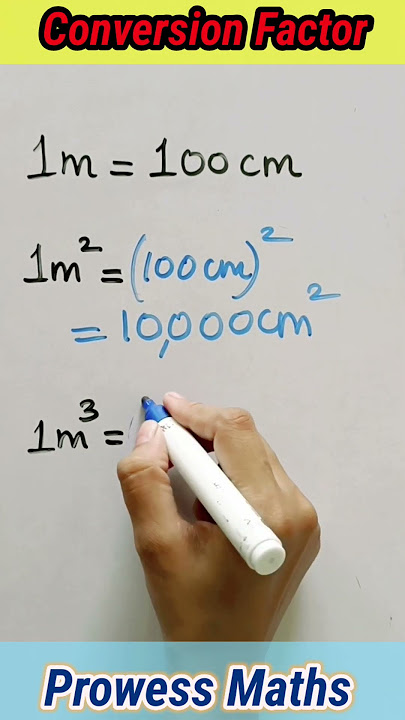 Conversion Factor
1m = 100 cm
1m² = (100 cm)²
= 10,000 cm²
1m³ =
Prowess Maths